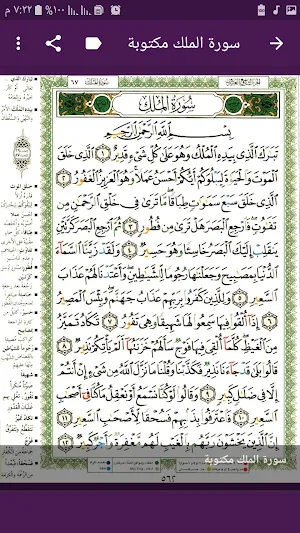 ٧:٢٢ م
١٠٠%
سورة الملك مكتوبة
٦٧
سُورَةُ المُلْكِ
بِسْمِ ٱللَّهِ ٱلرَّحْمَٰنِ ٱلرَّحِيمِ
تَبَٰرَكَ ٱلَّذِى بِيَدِهِ ٱلْمُلْكُ وَهُوَ عَلَىٰ كُلِّ شَىْءٍ قَدِيرٌ ١ ٱلَّذِى خَلَقَ
ٱلْمَوْتَ وَٱلْحَيَوٰةَ لِيَبْلُوَكُمْ أَيُّكُمْ أَحْسَنُ عَمَلًا وَهُوَ ٱلْعَزِيزُ ٱلْغَفُورُ ٢
ٱلَّذِى خَلَقَ سَبْعَ سَمَٰوَٰتٍ طِبَاقًا مَّا تَرَىٰ فِى خَلْقِ ٱلرَّحْمَٰنِ مِن
تَفَٰوُتٍ فَٱرْجِعِ ٱلْبَصَرَ هَلْ تَرَىٰ مِن فُطُورٍ ٣ ثُمَّ ٱرْجِعِ ٱلْبَصَرَ كَرَّتَيْنِ
يَنقَلِبْ إِلَيْكَ ٱلْبَصَرُ خَاسِئًا وَهُوَ حَسِيرٌ ٤ وَلَقَدْ زَيَّنَّا ٱلسَّمَآءَ
ٱلدُّنْيَا بِمَصَٰبِيحَ وَجَعَلْنَٰهَا رُجُومًا لِّلشَّيَٰطِينِ وَأَعْتَدْنَا لَهُمْ عَذَابَ
ٱلسَّعِيرِ ٥ وَلِلَّذِينَ كَفَرُوا۟ بِرَبِّهِمْ عَذَابُ جَهَنَّمَ وَبِئْسَ ٱلْمَصِيرُ
٦ إِذَآ أُلْقُوا۟ فِيهَا سَمِعُوا۟ لَهَا شَهِيقًا وَهِىَ تَفُورُ ٧ تَكَادُ تَمَيَّزُ
مِنَ ٱلْغَيْظِ كُلَّمَآ أُلْقِىَ فِيهَا فَوْجٌ سَأَلَهُمْ خَزَنَتُهَآ أَلَمْ يَأْتِكُمْ نَذِيرٌ ٨
قَالُوا۟ بَلَىٰ قَدْ جَآءَنَا نَذِيرٌ فَكَذَّبْنَا وَقُلْنَا مَا نَزَّلَ ٱللَّهُ مِن شَىْءٍ إِنْ أَنتُمْ
إِلَّا فِى ضَلَٰلٍ كَبِيرٍ ٩ وَقَالُوا۟ لَوْ كُنَّا نَسْمَعُ أَوْ نَعْقِلُ مَا كُنَّا فِىٓ أَصْحَٰبِ
ٱلسَّعِيرِ ١٠ فَٱعْتَرَفُوا۟ بِذَنۢبِهِمْ فَسُحْقًا لِّأَصْحَٰبِ ٱلسَّعِيرِ ١١
إِنَّ ٱلَّذِينَ يَخْشَوْنَ رَبَّهُم بِٱلْغَيْبِ لَهُم مَّغْفِرَةٌ وَأَجْرٌ كَبِيرٌ ١٢
سورة الملك مكتوبة
٥٦٢